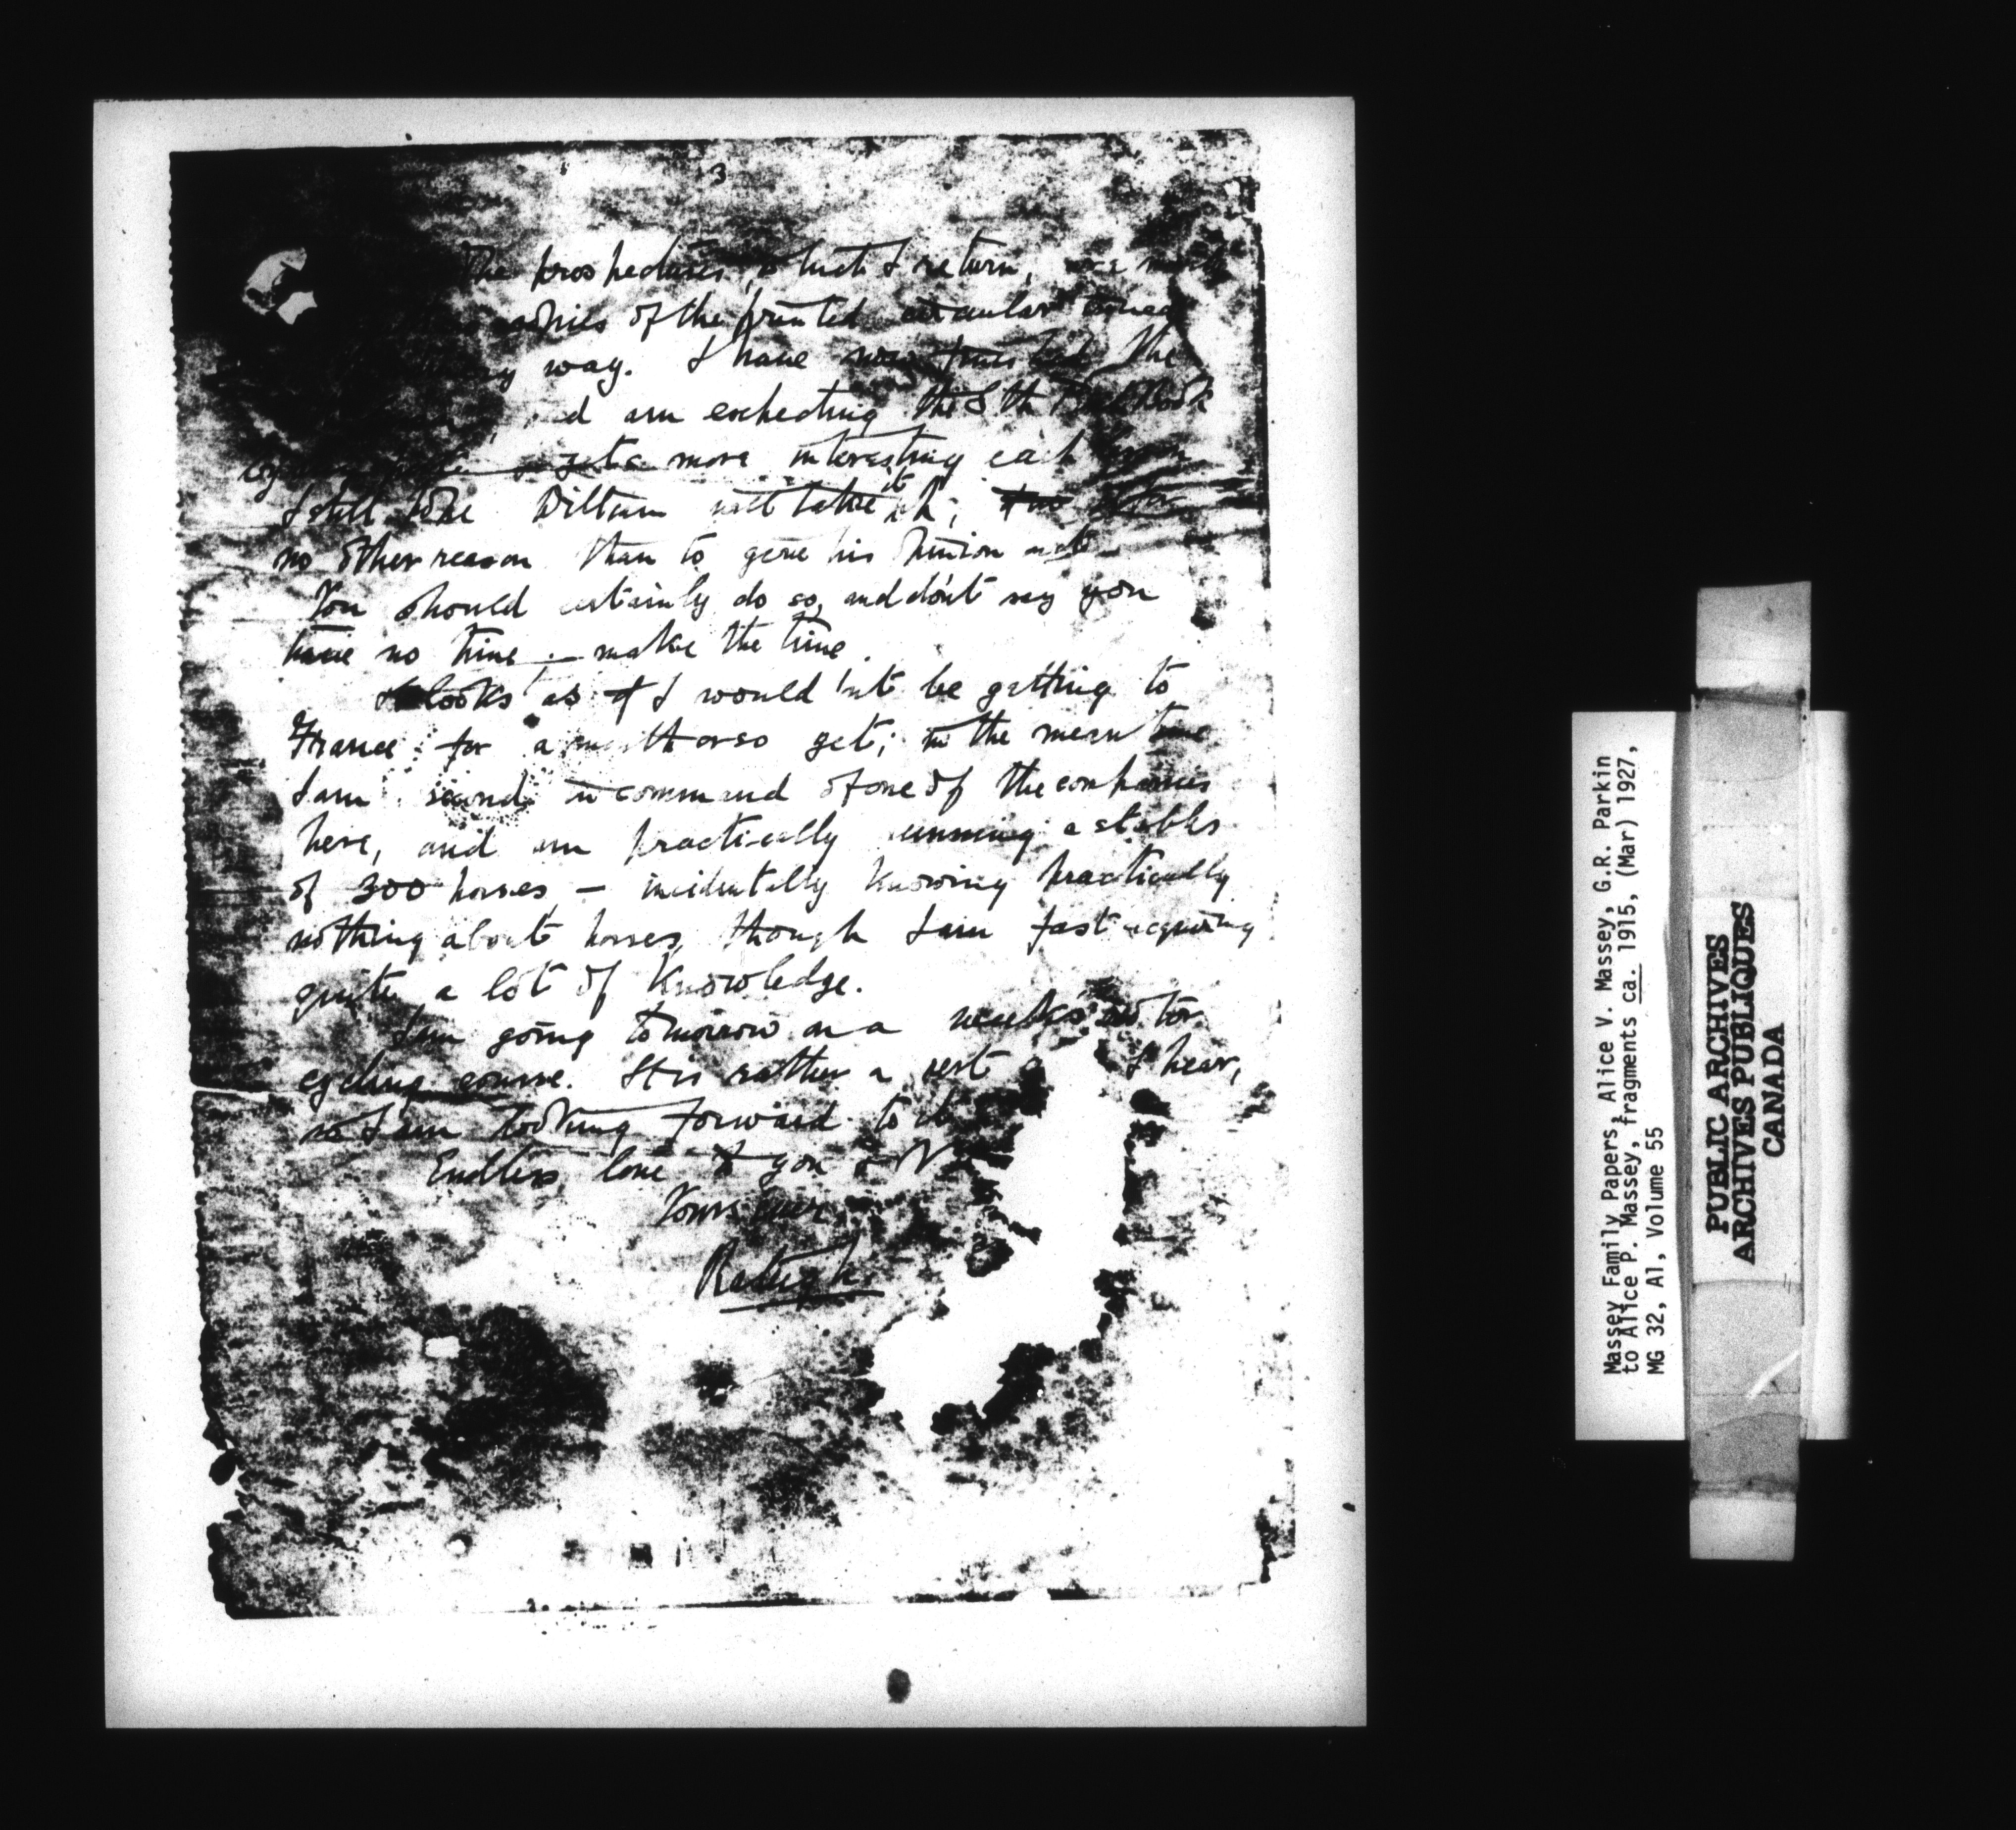 3
The prospectuses, which I return, are
copies of the printed circular
way. I have now finished the
am expecting the 8th
gets more interesting each
I still hope William will take it
no other reason than to give his opinion
You should certainly do so, and don't say you
have no time – make the time.
It looks as if I wouldn't be getting to
France for a month or so yet; in the mean time
I am second in command of one of the companies
here, and am practically running a stables
of 300 horses, – incidentally knowing practically
nothing about horses, though I am fast acquiring
quite a lot of knowledge.
I am going tomorrow on a weeks motor
cycling course. It is rather a rest I hear,
so I am looking forward to it
Endless love to you & V
Yours ever
Raleigh
Massey Family Papers, Alice V. Massey, G.R. Parkin
to Alice P. Massey, fragments ca. 1915, (Mar) 1927,
MG 32, A1, Volume 55
PUBLIC ARCHIVES
ARCHIVES PUBLIQUES
CANADA